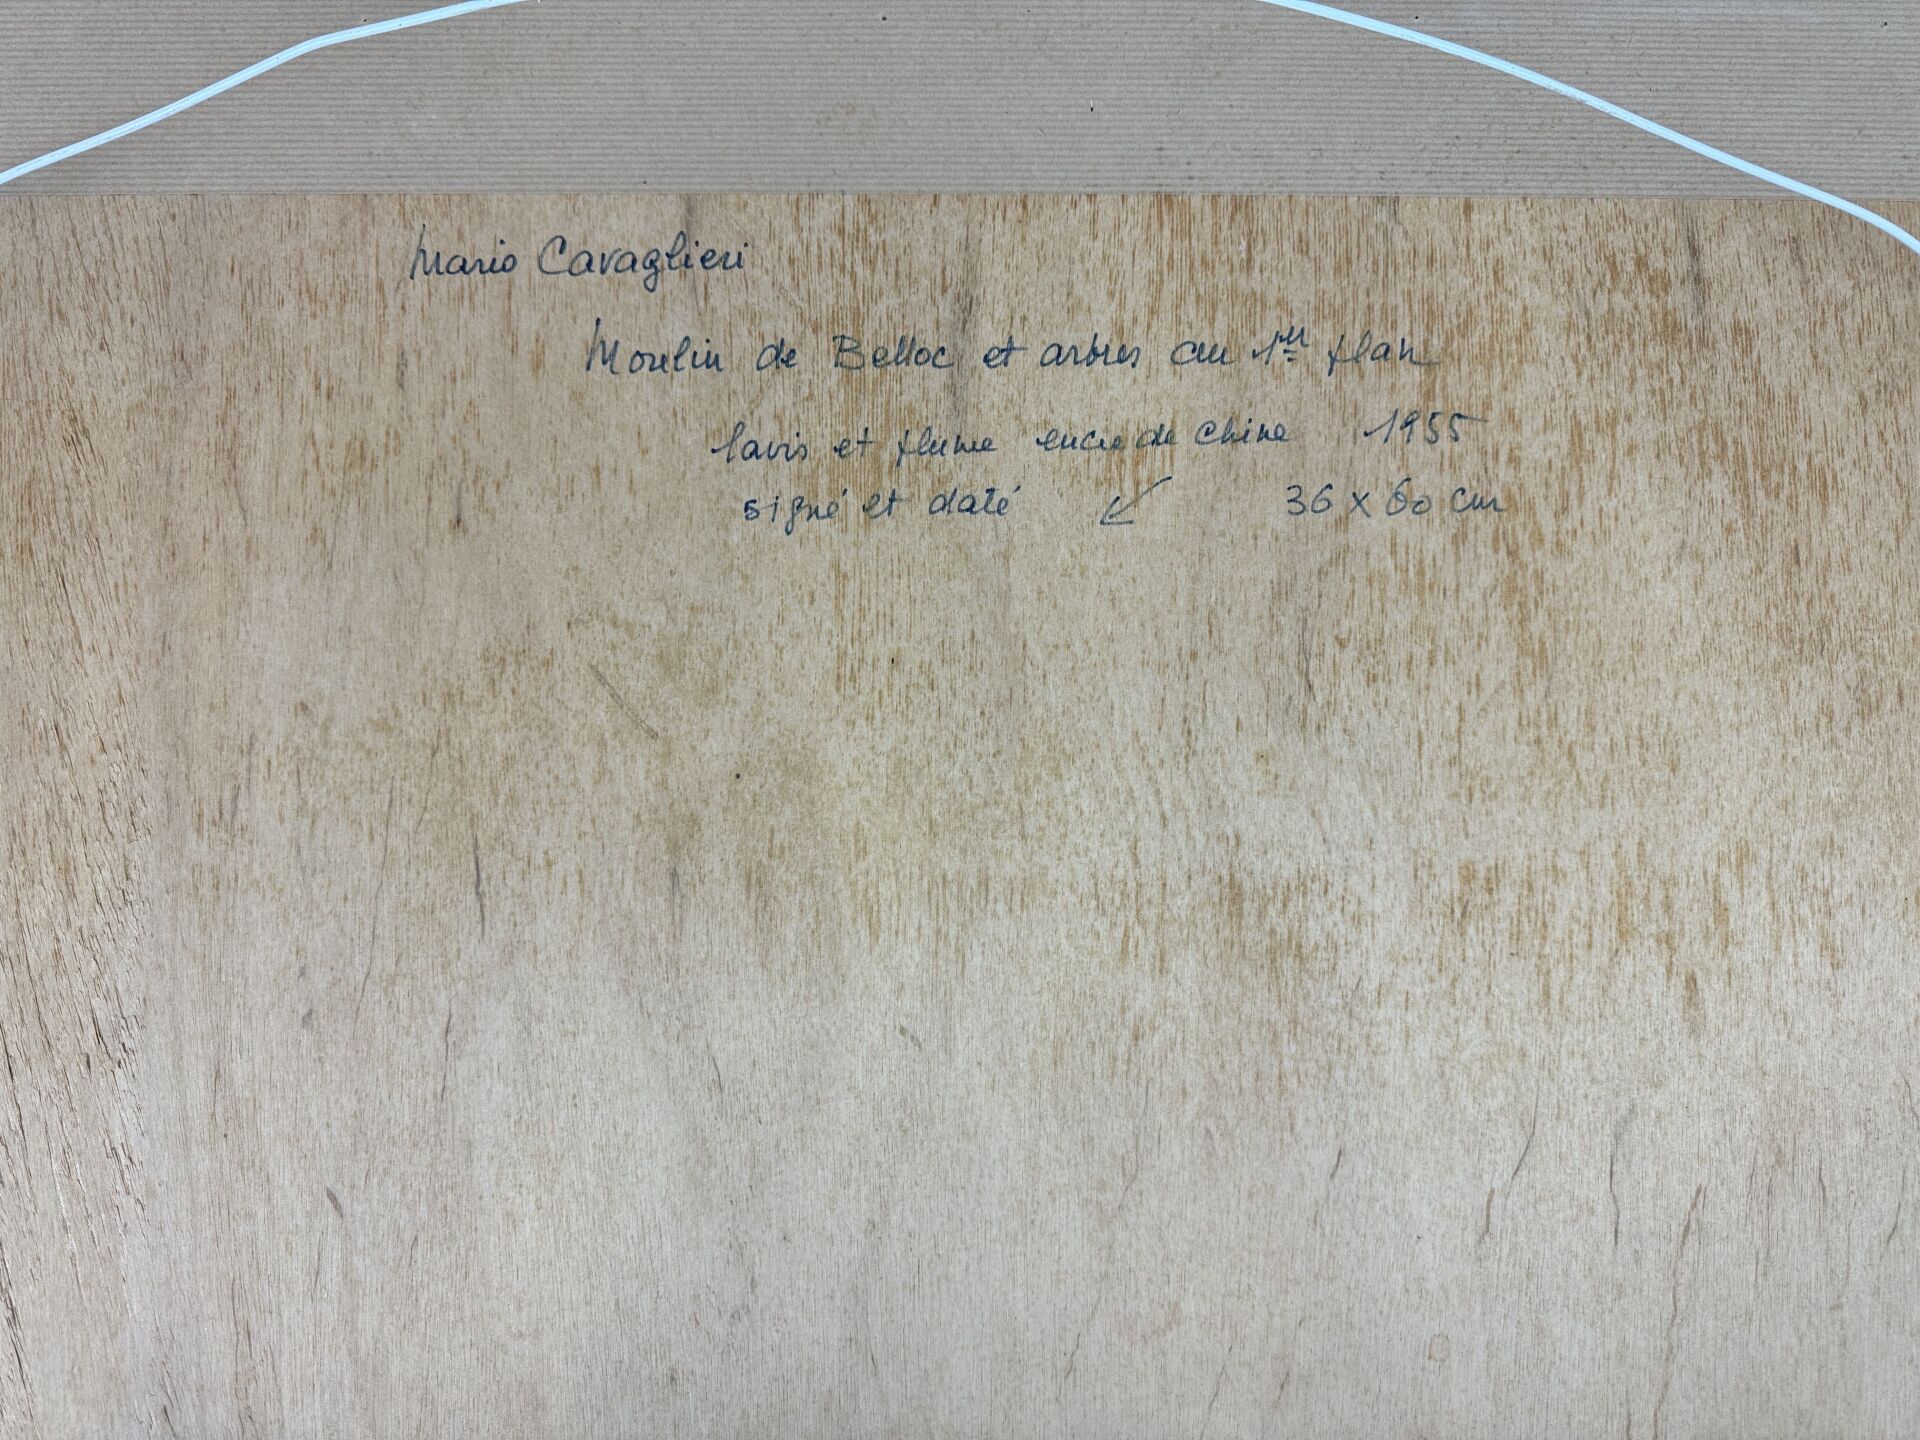 Mario Cavaglieri
Moulin de Belloc et arbres au 1er plan
lavis et plume encre de chine 1955
signé et daté ↙ 36 x 60 cm